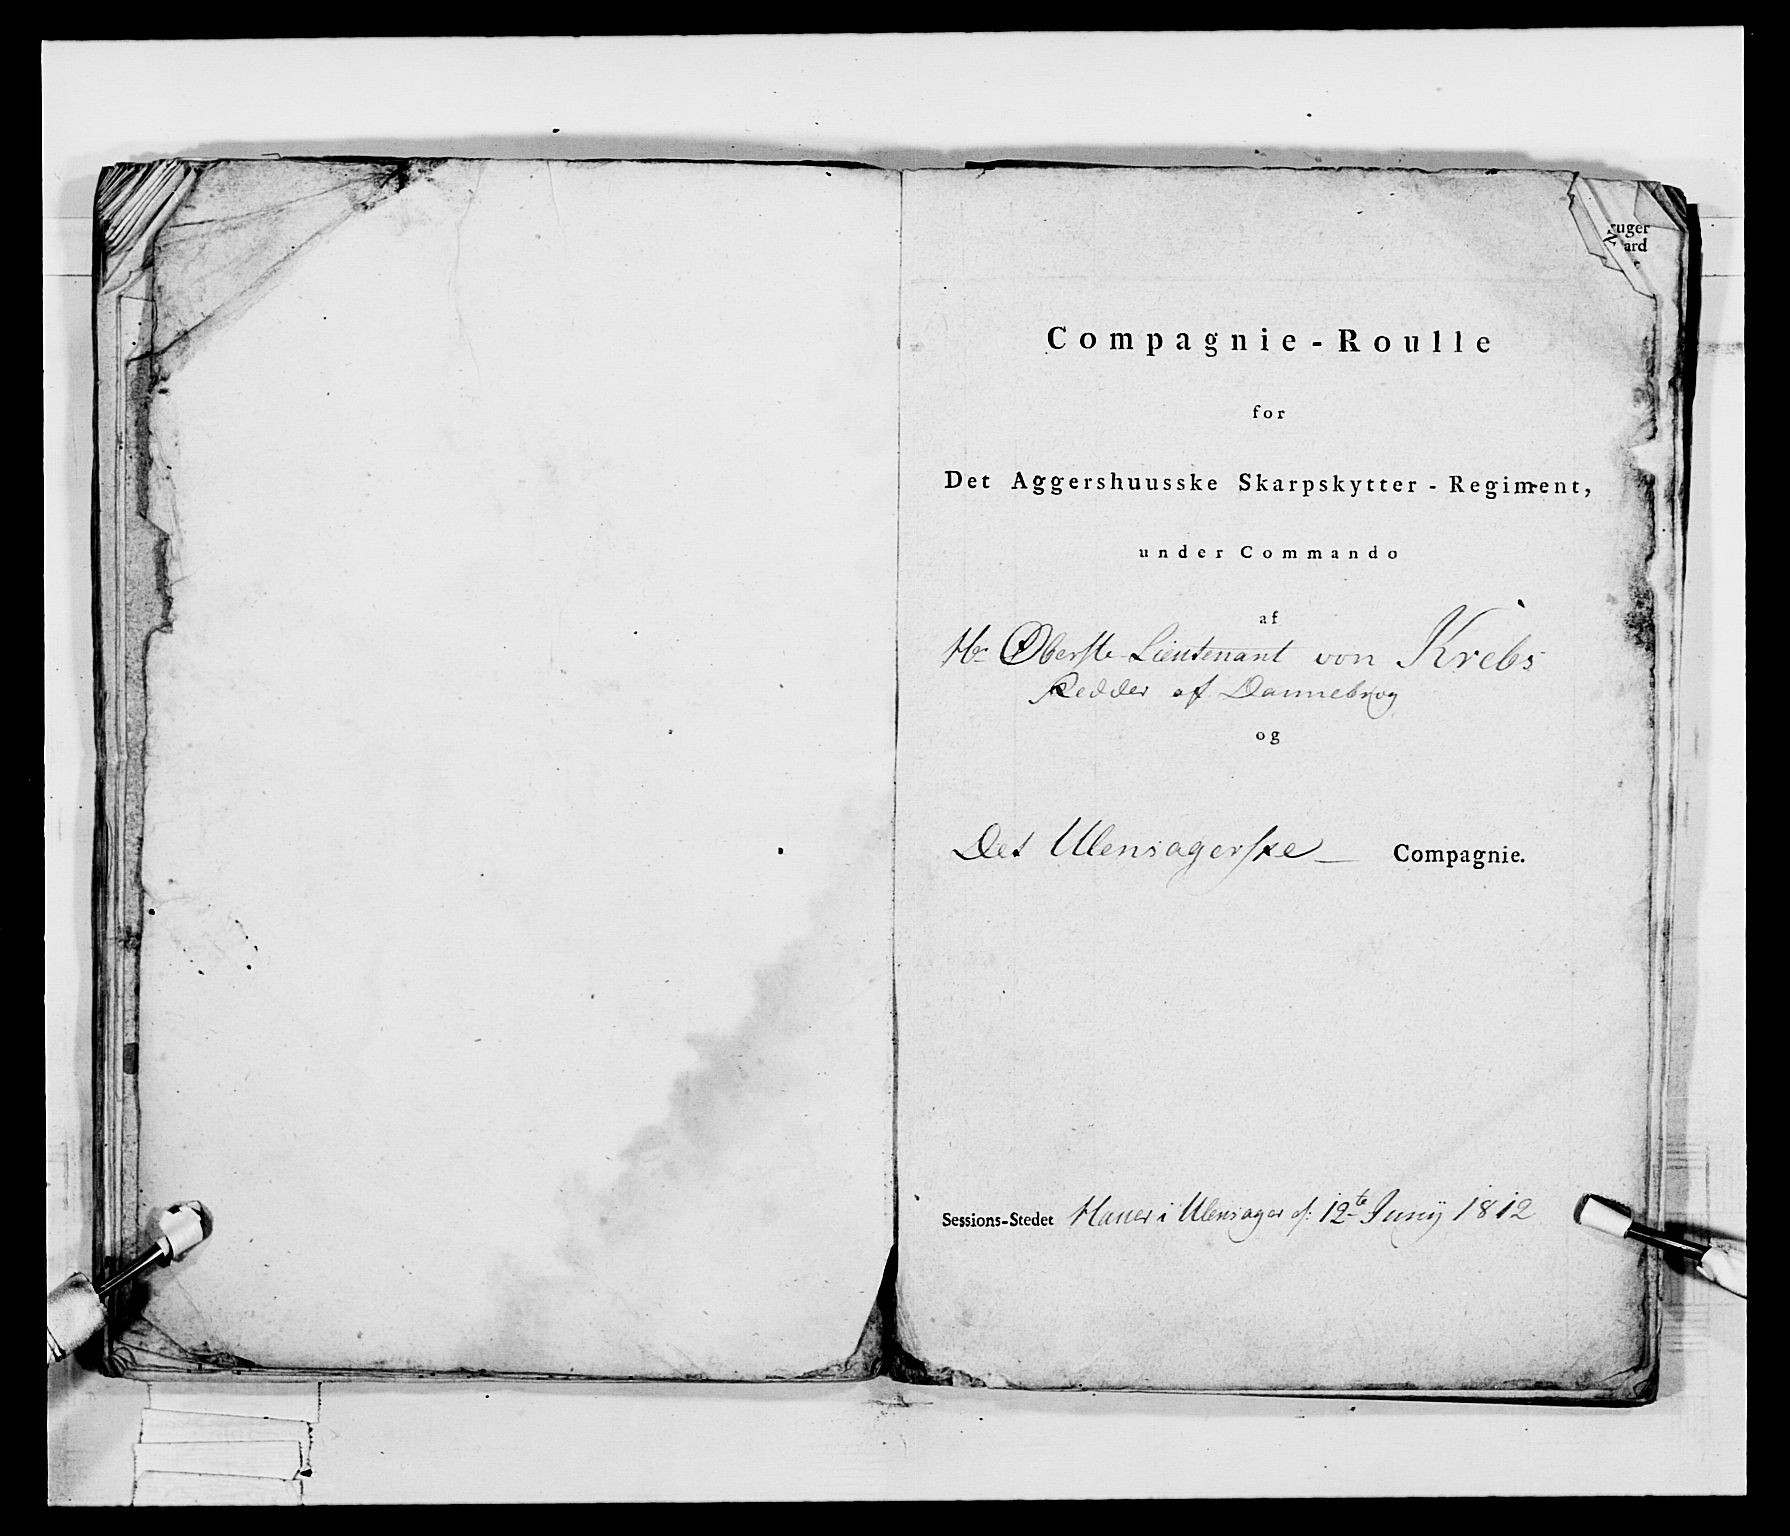 uger
ard
Compagnie-Roulle
for
Det Aggershuusske Skarpskytter-Regiment,
under Commando
af
Hr Oberste-Lieutenant von Krebs
Redder af Dannebrog
og
Det Ulensagerske Compagnie.
Sessions-Stedet Hauer i Ulensager d: 12te Junÿ 1812